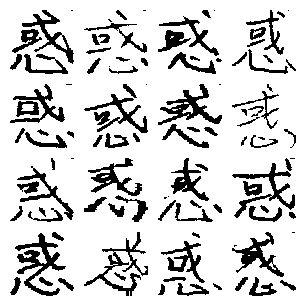 惑惑惑惑
惑惑惑惑
惑惑惑惑
惑惑惑惑